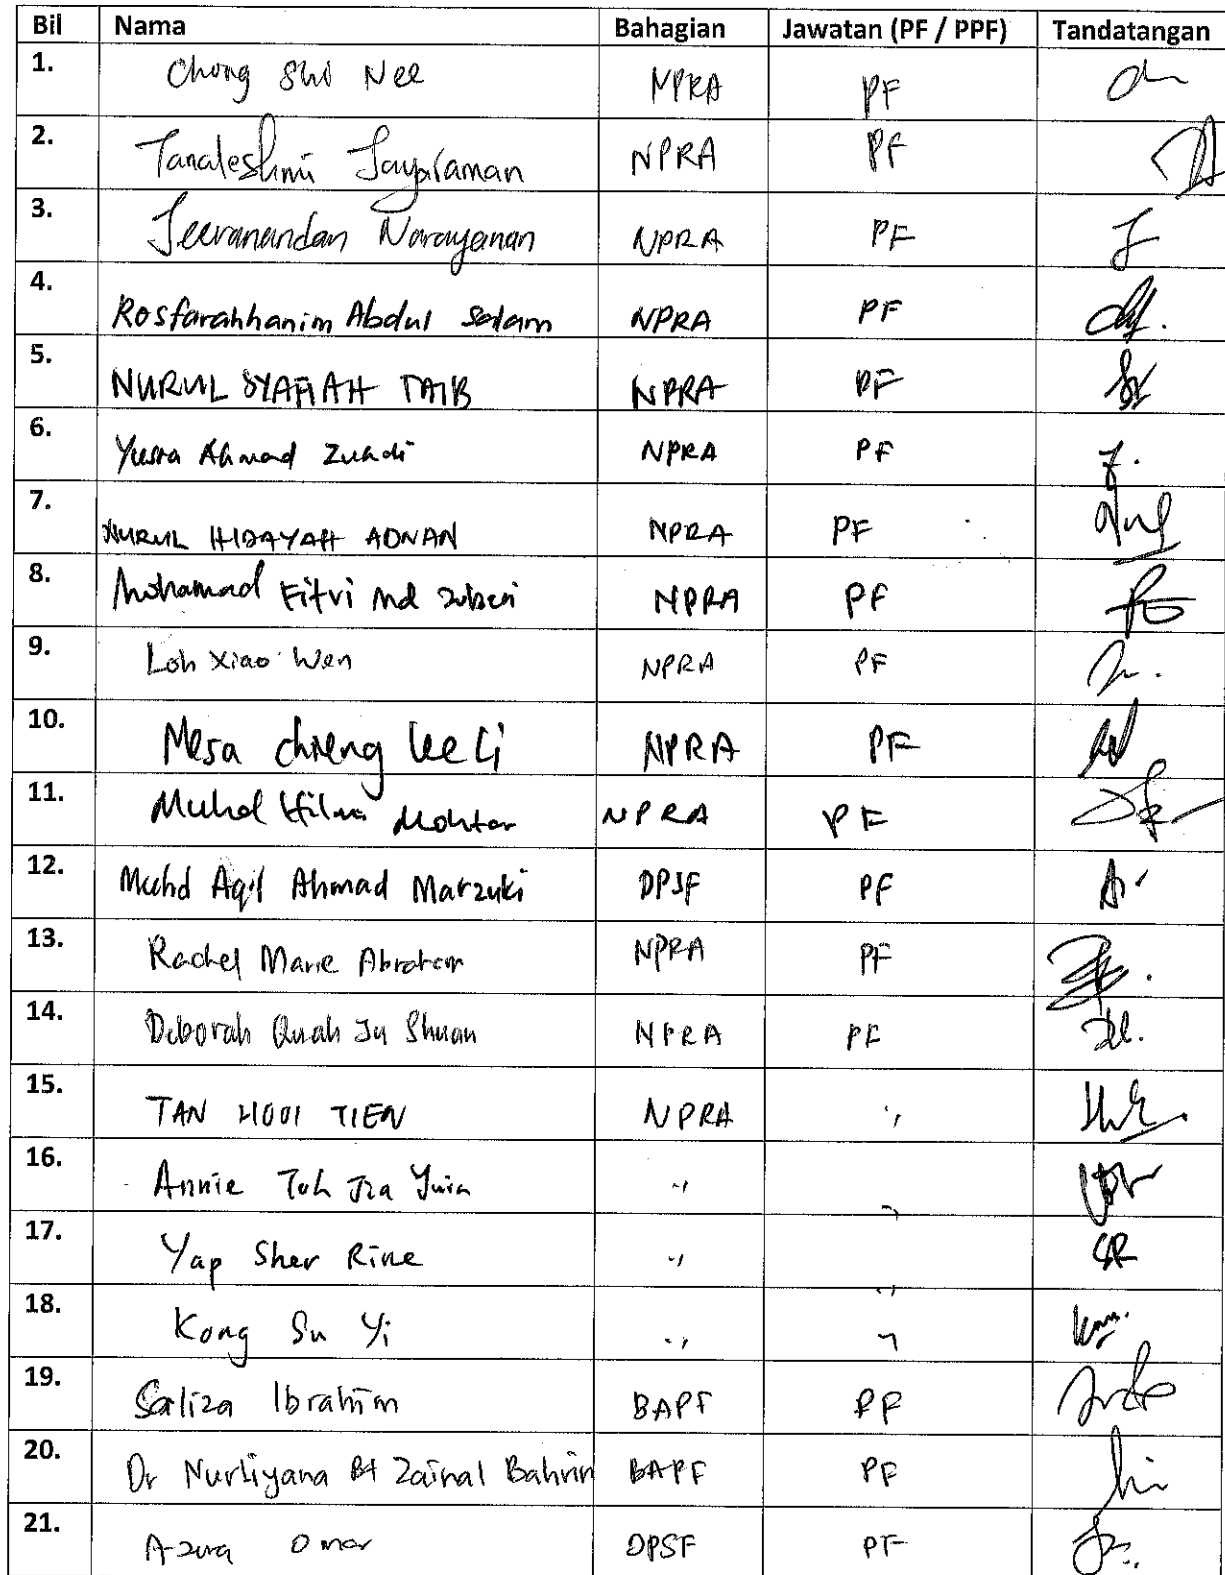 Bil Nama Bahagian Jawatan (PF / PPF) Tandatangan
1. Chong Shi Nee NPRA PF
2. Tanaleshmi Jayaraman NPRA PF
3. Jeevanandan Narayanan NPRA PF
4. Rosfarahhanim Abdul Salam NPRA PF
5. NURUL SYAFIAH TAIB NPRA PF
6. Yusra Ahmad Zuhdi NPRA PF
7. NURUL HIDAYAH ADNAN NPRA PF
8. Mohamad Fitri Md Zuberi NPRA PF
9. Loh Xiao Wen NPRA PF
10. Mesa Chieng Kee Li NPRA PF
11. Muhd Hilmi Mohtar NPRA PF
12. Muhd Aqil Ahmad Marzuki DPSF PF
13. Rachel Marie Abraham NPRA PF
14. Deborah Quah Ju Shuan NPRA PF
15. TAN HOOI TIEN NPRA "
16. Annie Toh Jia Yuin " "
17. Yap Sher Rine " "
18. Kong Su Yi " "
19. Saliza Ibrahim BAPF PF
20. Dr Nurliyana Bt Zainal Bahrin BAPF PF
21. Azura Omar DPSF PF